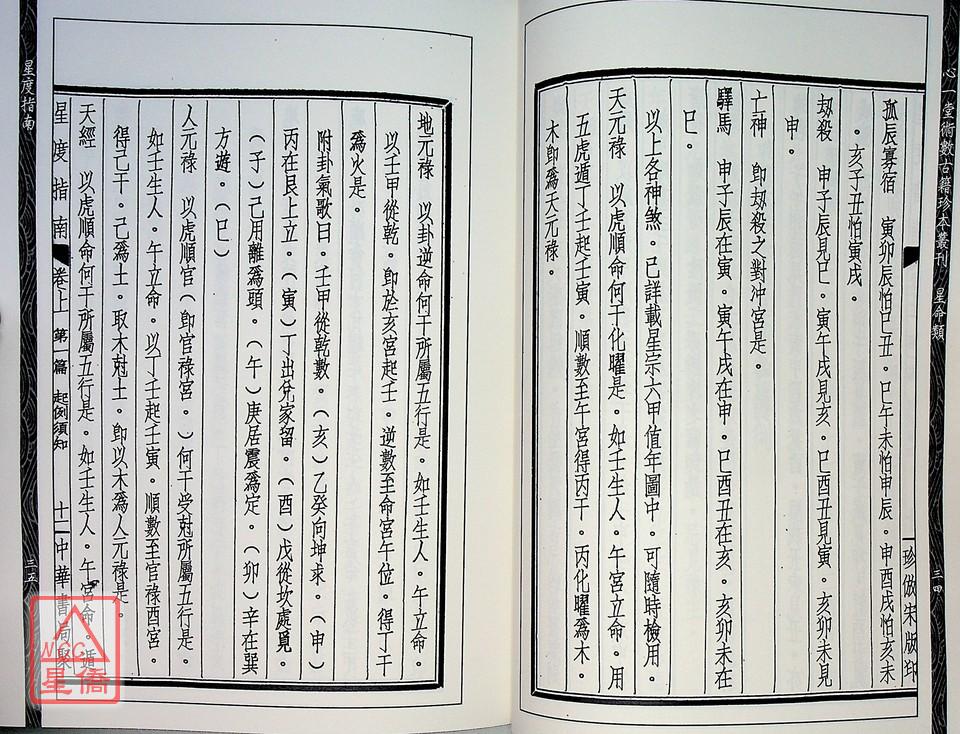 心一堂術數古籍珍本叢刊 星命類
三四
珍倣宋版印
孤辰寡宿 寅卯辰怕巳丑。巳午未怕申辰。申酉戌怕亥未
。亥子丑怕寅戌。
劫殺 申子辰見巳。寅午戌見亥。巳酉丑見寅。亥卯未見
申。
亡神 卽劫殺之對沖宮是。
驛馬 申子辰在寅。寅午戌在申。巳酉丑在亥。亥卯未在
巳。
以上各神煞。已詳載星宗六甲值年圖中。可隨時檢用。
天元祿 以虎順命何干化曜是。如壬生人。午宮立命。用
五虎遁丁壬起壬寅。順數至午宮得丙干。丙化曜爲木。
木卽爲天元祿。
地元祿 以卦逆命何干所屬五行是。如壬生人。午立命。
以壬甲從乾。卽於亥宮起壬。逆數至命宮午位。得丁干
爲火是。
附卦氣歌曰。壬甲從乾數。(亥)乙癸向坤求。(申)
丙在艮上立。(寅)丁出兌家留。(酉)戊從坎處覓。
(子)己用離爲頭。(午)庚居震爲定。(卯)辛在巽
方遊。(巳)
人元祿 以虎順官(卽官祿宮。)何干受尅所屬五行是。
如壬生人。午立命。以丁壬起壬寅。順數至官祿酉宮。
得己干。己爲土。取木尅土。卽以木爲人元祿是。
天經 以虎順命何干所屬五行是。如壬生人。午宮命。遁
星度指南 卷上 第一篇 起例須知 十二 中華書局聚
星度指南
三五
WCC
星僑